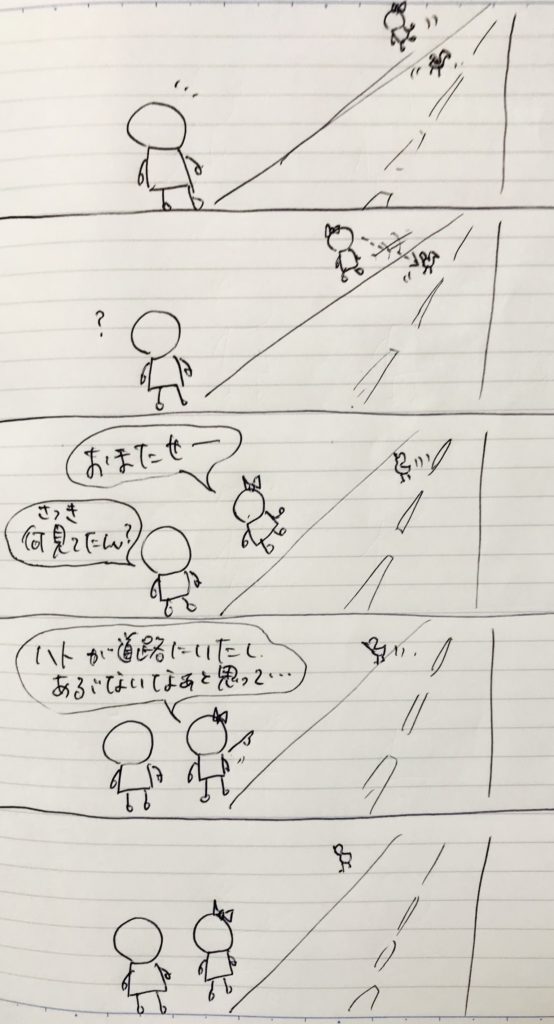 ?
おまたせー
さっき
何見てたん?
ハトが道路にいたし、
あぶないなぁと思って…